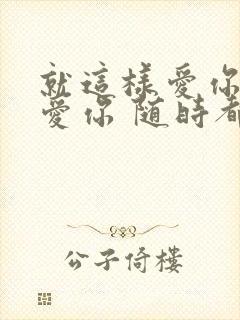 就這樣愛你
愛你 随時都
公子倚樓